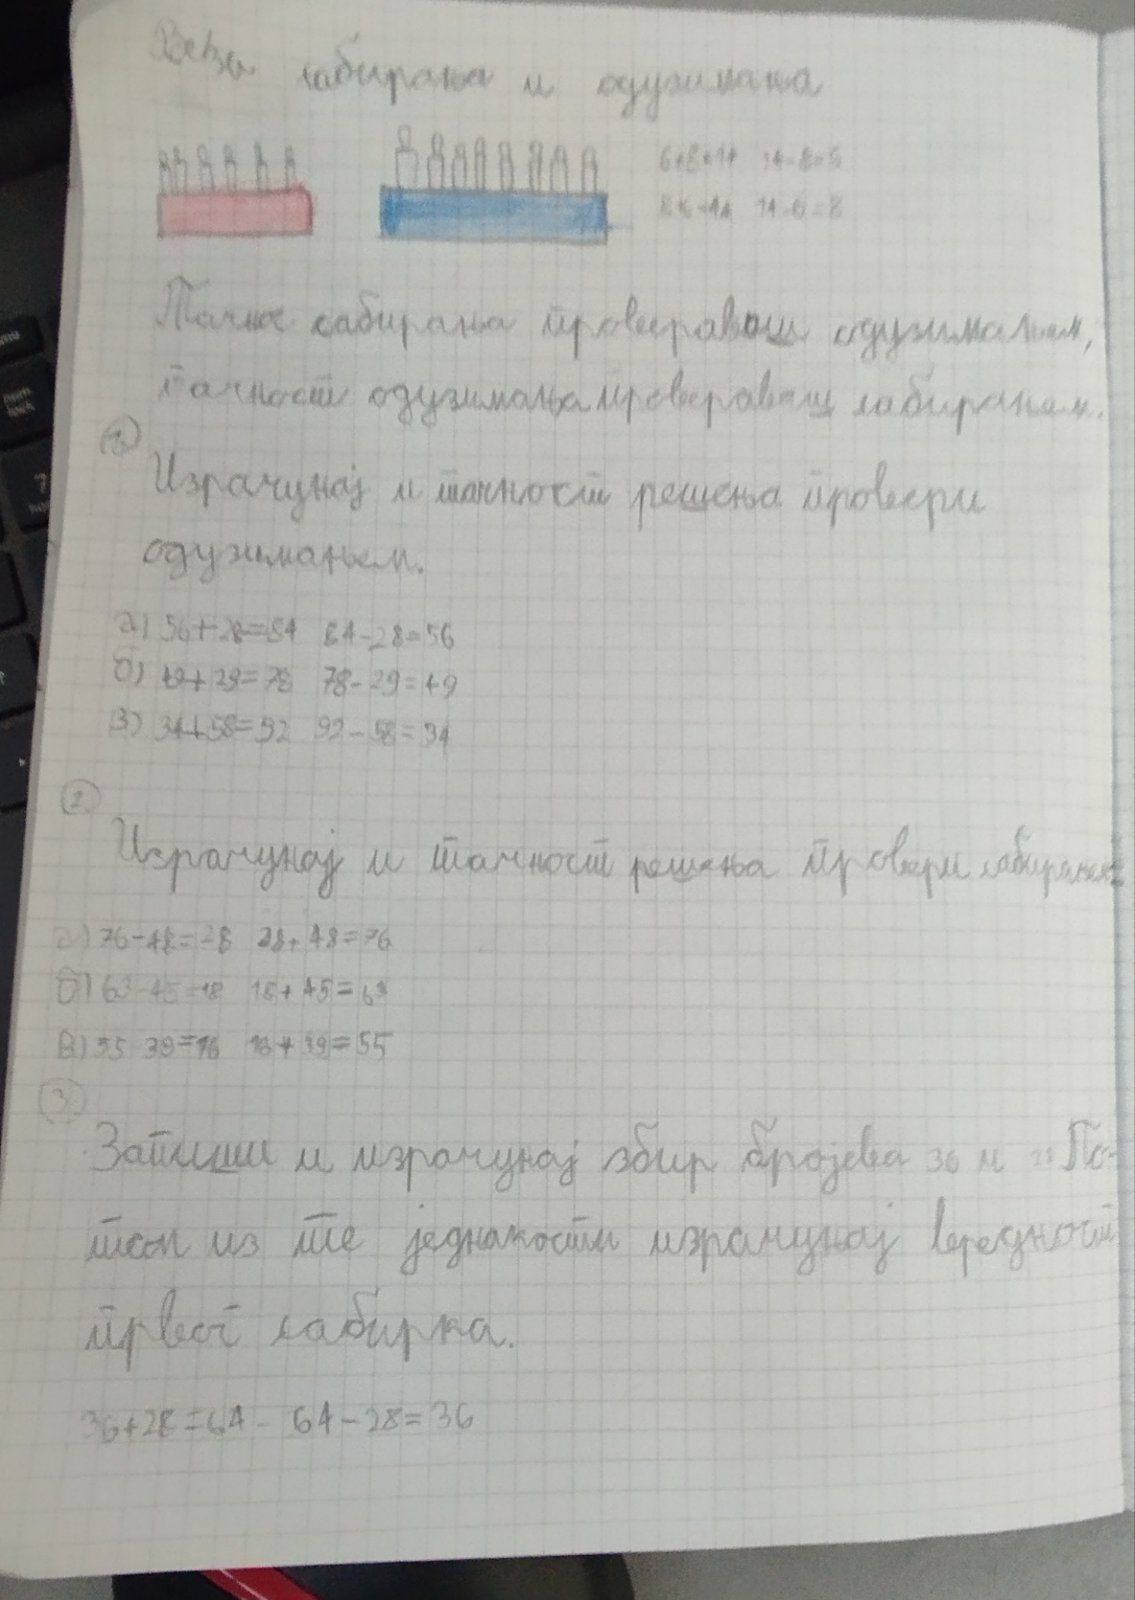 Веза сабирања и одузимања
6+8=14 14-8=6
8+6=14 14-6=8
сабирања провераваш одузимањем,
тачност одузимања провераваш сабирањем.
1.
Израчунај и тачност решења провери
одузимањем.
а) 56+28=84 84-28=56
б) 49+29=78 78-29=49
в) 34+58=92 92-58=34
2.
Израчунај и тачност решења провери
а) 76-48=28 28+48=76
б) 63-45=18 18+45=63
в) 55 39=16 16+39=55
3.
Запиши и израчунај збир бројева 36 и По-
том из те једнакости израчунај вредност
првог сабирка.
36+28=64- 64-28=36